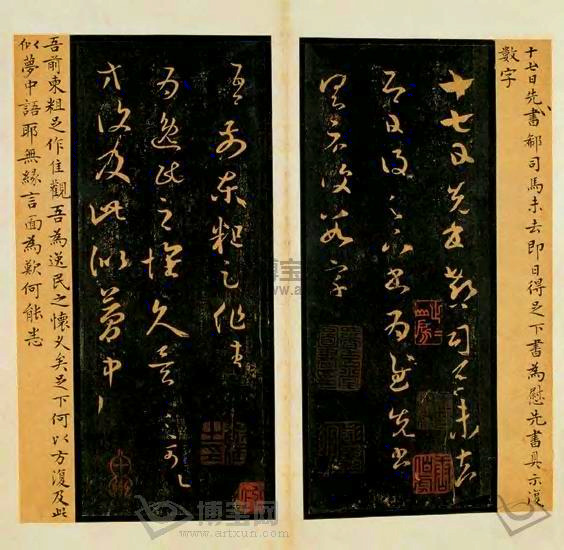 十七日先書郗司馬未去即日得足下書為慰先書具示復
数字
十七日先書郗司馬未去
即日得足下書為慰先書
以具示復數字
吾前東粗足作佳觀
為逸民之懷久矣足下何以
方復及此似夢中語
吾前東粗足作佳觀吾為逸民之懷久矣足下何以方復及此
似夢中語耶無緣言面為歎何能悉
博宝网
www.artxun.com